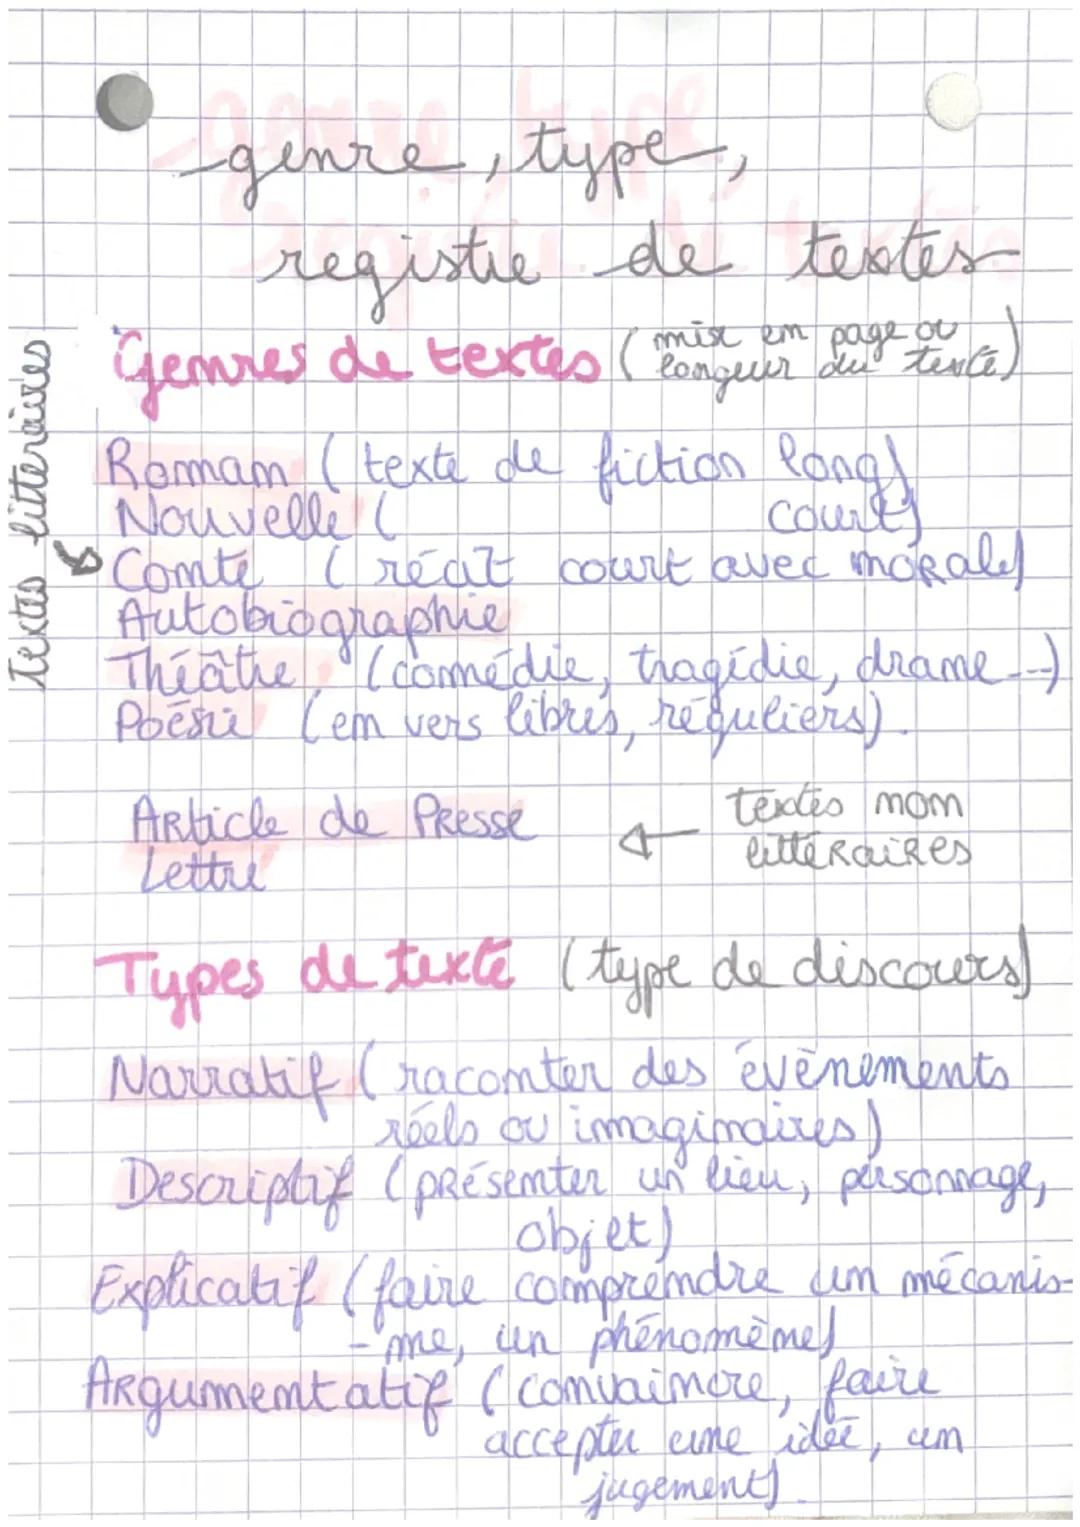 genre, type,
registre de textes
Genres de textes (mise en page ou
longueur du texte)
Textes litteraires
Roman (texte de fiction long)
Nouvelle ( court)
Conte (récit court avec morale)
Autobiographie
Théâtre (comédie, tragédie, drame...)
Poésie (en vers libres, réguliers).
Article de Presse
Lettre
textes non
littéraires
Types de texte (type de discours)
Narratif (raconter des évènements
réels ou imaginaires)
Descriptif (présenter un lieu, personnage,
objet)
Explicatif (faire comprendre un mécanis-
-me, un phénomène)
Argumentatif (convaincre, faire
accepter une idée, un
jugement).